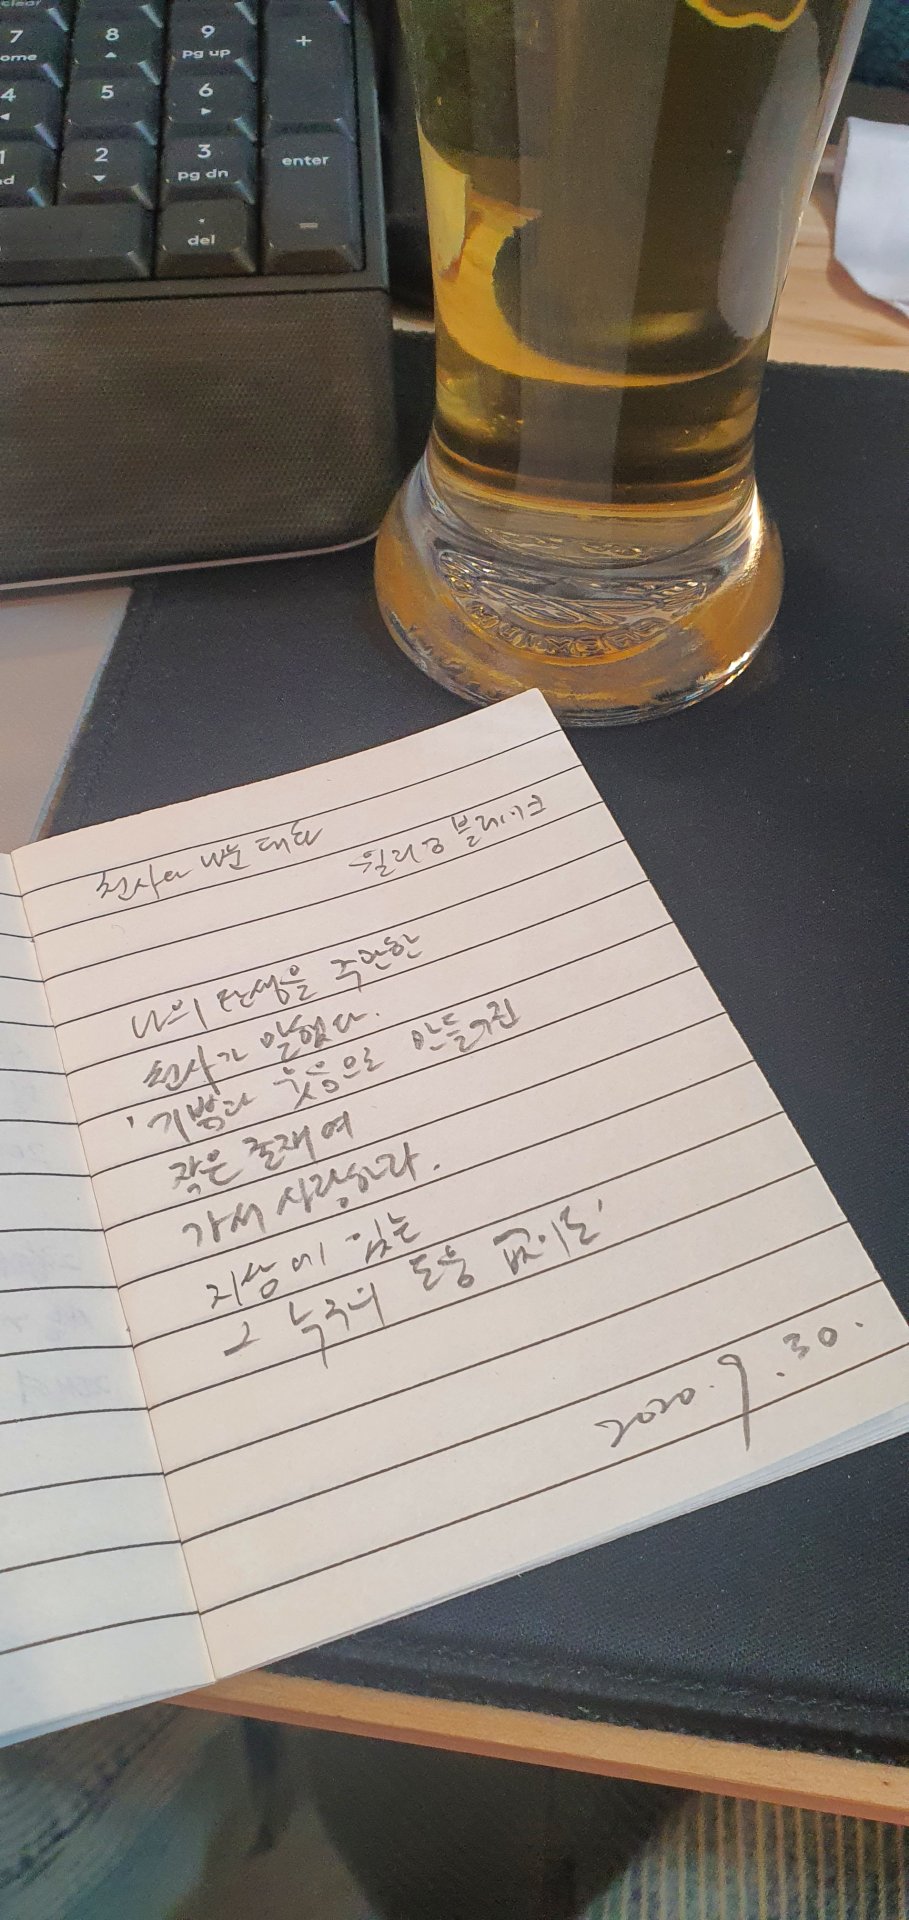 clear
7
8
9
+
ome
pg up
4
5
6
1
2
3
enter
nd
pg dn
.
=
del
천사와 나눈 대화
윌리엄 블레이크
나의 탄생을 주관한
천사가 말했다.
'기쁨과 웃음으로 만들어진
작은 존재여
가서 사랑하라.
지상에 있는
그 누구의 도움 없이도'
2020. 6. 30.